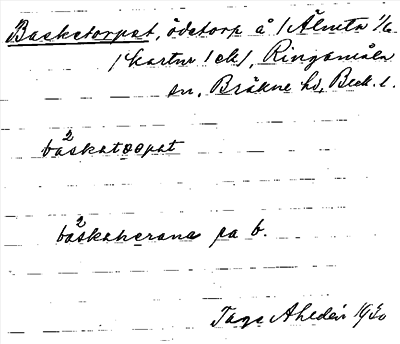 Basketorpet, ödetorp å /Älmta 1/6.
/ kartor / ek/, Ringamåla
sn, Bräkne hd, Blek. l.
bå2skatorpst
bå2skaherana pa b.
Tage Ahldén 1930